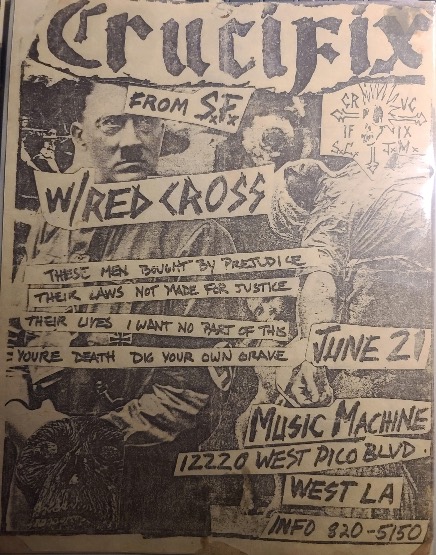 Crucifix
FROM S.F.
CR UC
IF IX
W/RED CROSS
THESE MEN BOUGHT BY PREJUDICE
THEIR LAWS NOT MADE FOR JUSTICE
THEIR LIVES I WANT NO PART OF THIS
YOURE DEATH DIG YOUR OWN GRAVE
JUNE 21
MUSIC MACHINE
12220 WEST PICO BLVD.
WEST LA
INFO 820-5150